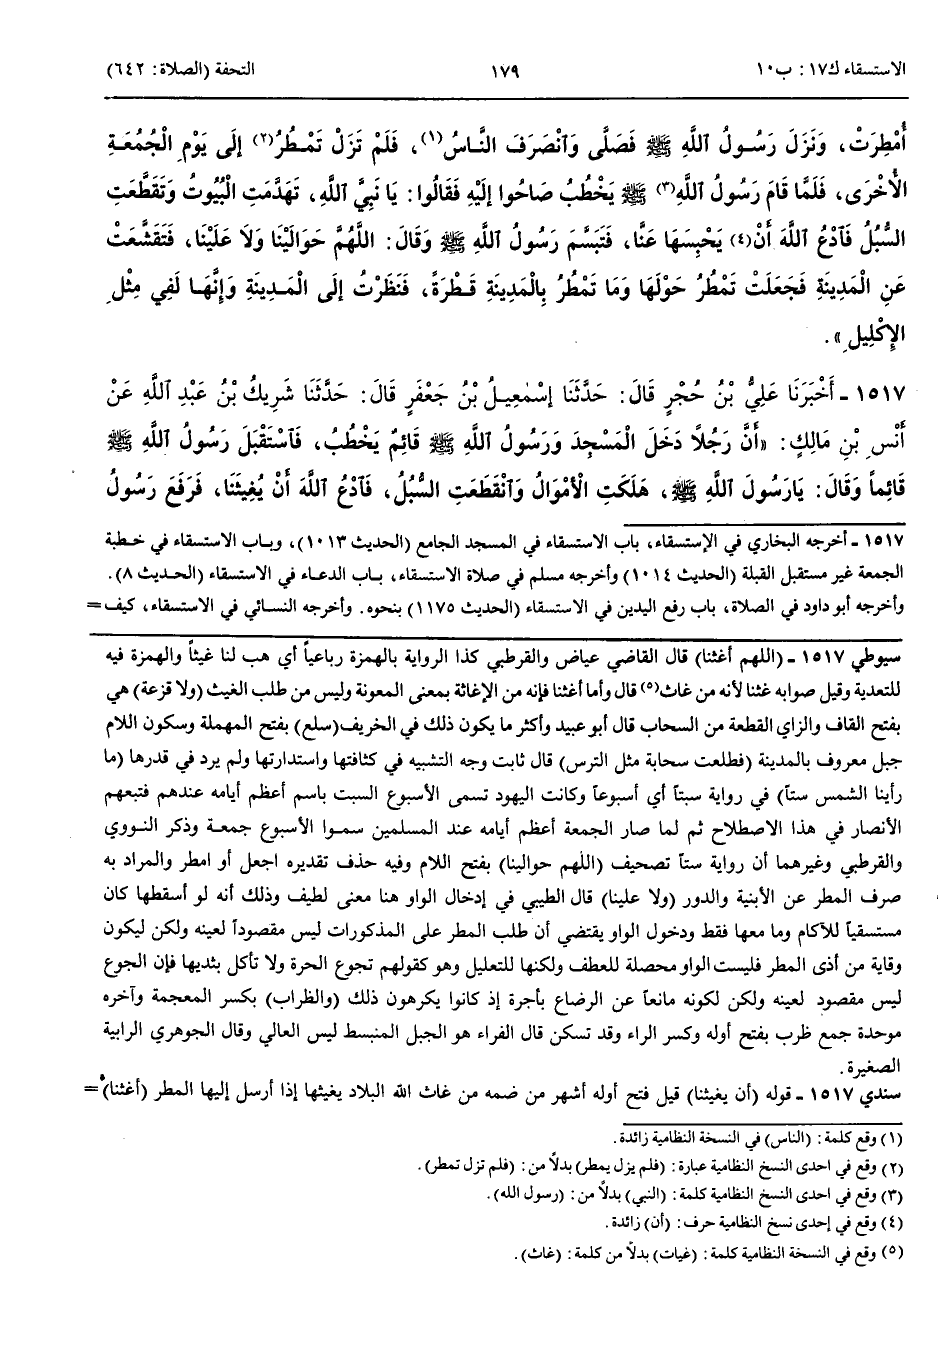 الاستسقاء ك١٧: ب١٠
١٧٩
التحفة (الصلاة: ٦٤٢)
أُمْطِرَتْ، وَنَزَلَ رَسُولُ ٱللَّهِ ﷺ فَصَلَّى وَٱنْصَرَفَ النَّاسُ(١)، فَلَمْ تَزَلْ تَمْطُرُ(٢) إِلَى يَوْمِ الْجُمُعَةِ
الْأُخْرَى، فَلَمَّا قَامَ رَسُولُ ٱللَّهِ(٣) ﷺ يَخْطُبُ صَاحُوا إِلَيْهِ فَقَالُوا: يَا نَبِيَّ ٱللَّهِ، تَهَدَّمَتِ الْبُيُوتُ وَتَقَطَّعَتِ
السُّبُلُ فَٱدْعُ اللَّهَ أَنْ(٤) يَحْبِسَهَا عَنَّا، فَتَبَسَّمَ رَسُولُ اللَّهِ ﷺ وَقَالَ: اللَّهُمَّ حَوَالَيْنَا وَلَا عَلَيْنَا، فَتَقَشَّعَتْ
عَنِ الْمَدِينَةِ فَجَعَلَتْ تَمْطُرُ حَوْلَهَا وَمَا تَمْطُرُ بِالْمَدِينَةِ قَطْرَةً، فَنَظَرْتُ إِلَى الْمَدِينَةِ وَإِنَّهَا لَفِي مِثْلِ
الإِكْلِيلِ».
١٥١٧ - أَخْبَرَنَا عَلِيُّ بْنُ حُجْرٍ قَالَ: حَدَّثَنَا إِسْمٰعِيلُ بْنُ جَعْفَرٍ قَالَ: حَدَّثَنَا شَرِيكُ بْنُ عَبْدِ ٱللَّهِ عَنْ
أَنَسِ بْنِ مَالِكٍ: «أَنَّ رَجُلًا دَخَلَ الْمَسْجِدَ وَرَسُولُ اللَّهِ ﷺ قَائِمٌ يَخْطُبُ، فَٱسْتَقْبَلَ رَسُولُ اللَّهِ ﷺ
قَائِماً وَقَالَ: يَارَسُولَ اللَّهِ ﷺ، هَلَكَتِ الْأَمْوَالُ وَٱنْقَطَعَتِ السُّبُلُ، فَٱدْعُ اللَّهَ أَنْ يُغِيثَنَا، فَرَفَعَ رَسُولُ
١٥١٧ - أخرجه البخاري في الإستسقاء، باب الاستسقاء في المسجد الجامع (الحديث ١٠١٣)، وباب الاستسقاء في خطبة
الجمعة غير مستقبل القبلة (الحديث ١٠١٤) وأخرجه مسلم في صلاة الاستسقاء، باب الدعاء في الاستسقاء (الحديث ٨).
وأخرجه أبو داود في الصلاة، باب رفع اليدين في الاستسقاء (الحديث ١١٧٥) بنحوه. وأخرجه النسائي في الاستسقاء، كيف =
سيوطي ١٥١٧ - (اللهم أغثنا) قال القاضي عياض والقرطبي كذا الرواية بالهمزة رباعياً أي هب لنا غيثاً والهمزة فيه
للتعدية وقيل صوابه غثنا لأنه من غاث(٥) قال وأما أغثنا فإنه من الإغاثة بمعنى المعونة وليس من طلب الغيث (ولا قزعة) هي
بفتح القاف والزاي القطعة من السحاب قال أبو عبيد وأكثر ما يكون ذلك في الخريف (سلع) بفتح المهملة وسكون اللام
جبل معروف بالمدينة (فطلعت سحابة مثل الترس) قال ثابت وجه التشبيه في كثافتها واستدارتها ولم يرد في قدرها (ما
رأينا الشمس ستاً) في رواية سبتاً أي أسبوعاً وكانت اليهود تسمى الأسبوع السبت باسم أعظم أيامه عندهم فتبعهم
الأنصار في هذا الاصطلاح ثم لما صار الجمعة أعظم أيامه عند المسلمين سموا الأسبوع جمعة وذكر النووي
والقرطبي وغيرهما أن رواية ستاً تصحيف (اللهم حوالينا) بفتح اللام وفيه حذف تقديره اجعل أو امطر والمراد به
صرف المطر عن الأبنية والدور (ولا علينا) قال الطيبي في إدخال الواو هنا معنى لطيف وذلك أنه لو أسقطها كان
مستسقياً للآكام وما معها فقط ودخول الواو يقتضي أن طلب المطر على المذكورات ليس مقصوداً لعينه ولكن ليكون
وقاية من أذى المطر فليست الواو محصلة للعطف ولكنها للتعليل وهو كقولهم تجوع الحرة ولا تأكل بثديها فإن الجوع
ليس مقصود لعينه ولكن لكونه مانعاً عن الرضاع بأجرة إذ كانوا يكرهون ذلك (والظراب) بكسر المعجمة وآخره
موحدة جمع ظرب بفتح أوله وكسر الراء وقد تسكن قال الفراء هو الجبل المنبسط ليس العالي وقال الجوهري الرابية
الصغيرة.
سندي ١٥١٧ - قوله (أن يغيثنا) قيل فتح أوله أشهر من ضمه من غاث الله البلاد يغيثها إذا أرسل إليها المطر (أغثنا) =
(١) وقع كلمة: (الناس) في النسخة النظامية زائدة.
(٢) وقع في احدى النسخ النظامية عبارة: (فلم يزل يمطر) بدلاً من: (فلم تزل تمطر).
(٣) وقع في احدى النسخ النظامية كلمة: (النبي) بدلاً من: (رسول الله).
(٤) وقع في إحدى نسخ النظامية حرف: (أن) زائدة.
(٥) وقع في النسخة النظامية كلمة: (غياث) بدلاً من كلمة: (غاث).